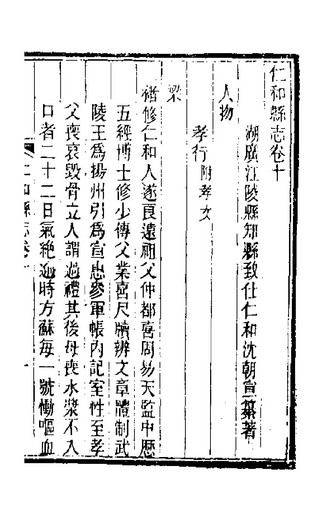 仁和縣志卷十
湖廣江陵縣知縣致仕仁和沈朝宣纂著
人物
孝行附孝女
梁
褚修仁和人遂良遠祖父仲都喜周易天監中歷
五經博士修少傳父業喜尺牘辨文章體制武
陵王爲揚州引爲宣惠參軍帳內記室性至孝
父喪哀毀骨立人謂過禮其後母喪水漿不入
口者二十二日氣絶逾時方蘇每一號慟嘔血
仁和縣志卷十